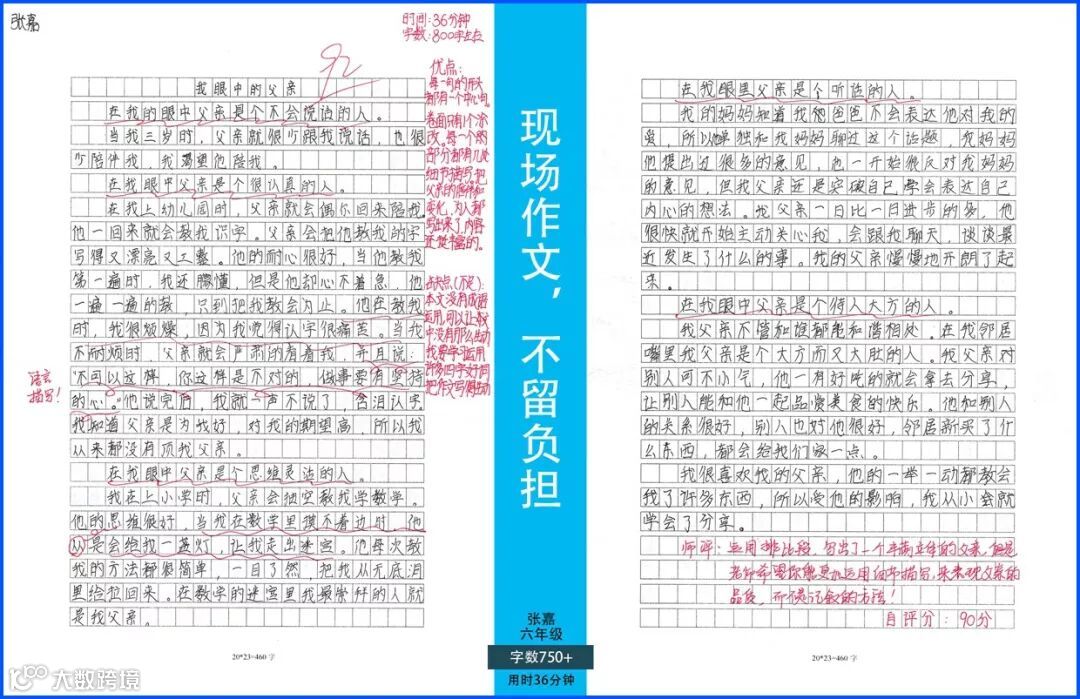 张嘉
时间:36分钟
字数:800字左右
92
我眼中的父亲
在我的眼中父亲是个不会说话的人。
当我三岁时，父亲就很少跟我说话，也很
少陪伴我，我渴望他陪我。
在我眼中父亲是个很认真的人。
在我上幼儿园时，父亲就会偶尔回来陪我，
他一回来就会教我识字。父亲会把他教我的字
写得又漂亮又工整。他的耐心很好，当他教我
第一遍时，我还朦懂，但是他却心不着急，他
一遍一遍的教，只到把我教会为止。他在教我
时，我很烦燥，因为我觉得认字很痛苦。当我
不耐烦时，父亲就会严肃的看着我，并且说：
“不可以这样，你这样是不对的，做事要有坚持
的心。”他说完后，我就一声不说了，含泪认字，
我知道父亲是为我好，对我的期望高，所以我
从来都没有顶我父亲。
在我眼中父亲是个思维灵活的人。
我在上小学时，父亲会抽空教我学数学。
他的思维很好，当我在数学里摸不着边时，他
从是会给我一盏灯，让我走出迷宫。他每次教
我的方法都很简单，一目了然，把我从无底洞
里给拉回来。在数字的迷宫里我最崇拜的人就
是我父亲。
20*23=460 字
优点：
每一句的开头
都有一个中心句。
卷面只有1个涂
改。每一个的
部分都有几处
细节描写，把
变化，
写出来了，内容
还挺丰富的。
缺点(不足)：
本文没有
运用，可以让
中没有那么生动
我要学习运用
许多四字文词
把作文写得生动
语言
描写！
现场作文，不留负担
张嘉
六年级
字数750+
用时36分钟
在我眼里父亲是个听话的人。
我的妈妈知道我爸爸不会表达他对我的
爱，所以单独和我妈妈聊过这个话题，我妈妈
他提出过很多的意见，他一开始很反对我妈妈
的意见，但我父亲还是突破自己，学会表达自己
内心的想法。我父亲一日比一日进步的多，他
很快就开始主动关心我，会跟我聊天，谈谈最
近发生了什么的事。我的父亲慢慢地开朗了起
来。
在我眼中父亲是个待人大方的人。
我父亲不管和谁都能和谐相处。在我邻居
嘴里我父亲是个大方而又大肚的人。我父亲对
别人可不小气，他一有好吃的就会拿去分享，
让别人能和他一起品尝美食的快乐。他和别人
的关系很好，别人也对他很好，邻居新买了什
么东西，都会给我们家一点。
我很喜欢我的父亲，他的一举一动都教会
我了许多东西，所以受他的影响，我从小会就
学会了分享。
师评：运用排比段，写出了一个丰满立体的父亲，但是
老师希望你能更加运用细节描写，来表现父亲的
品质，而不是记叙的方法！
自评分：90分
20*23=460 字
大数跨境